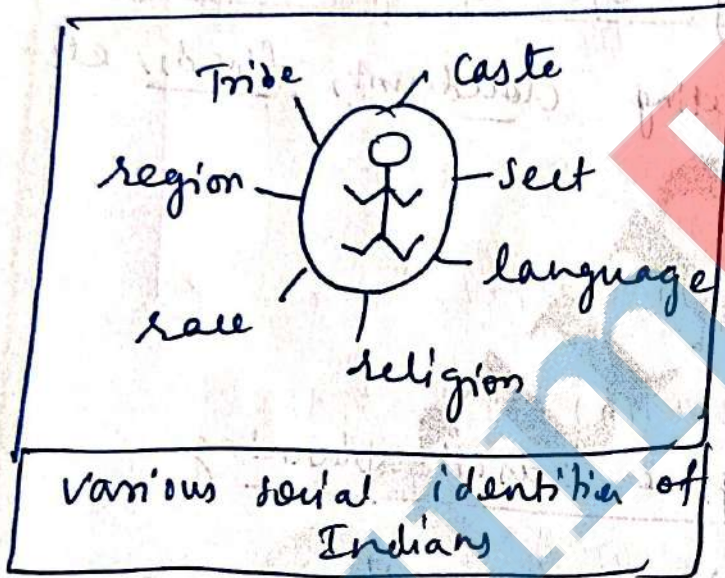 Tribe
Caste
region
Sect
language
race
religion
various social identities of
Indians